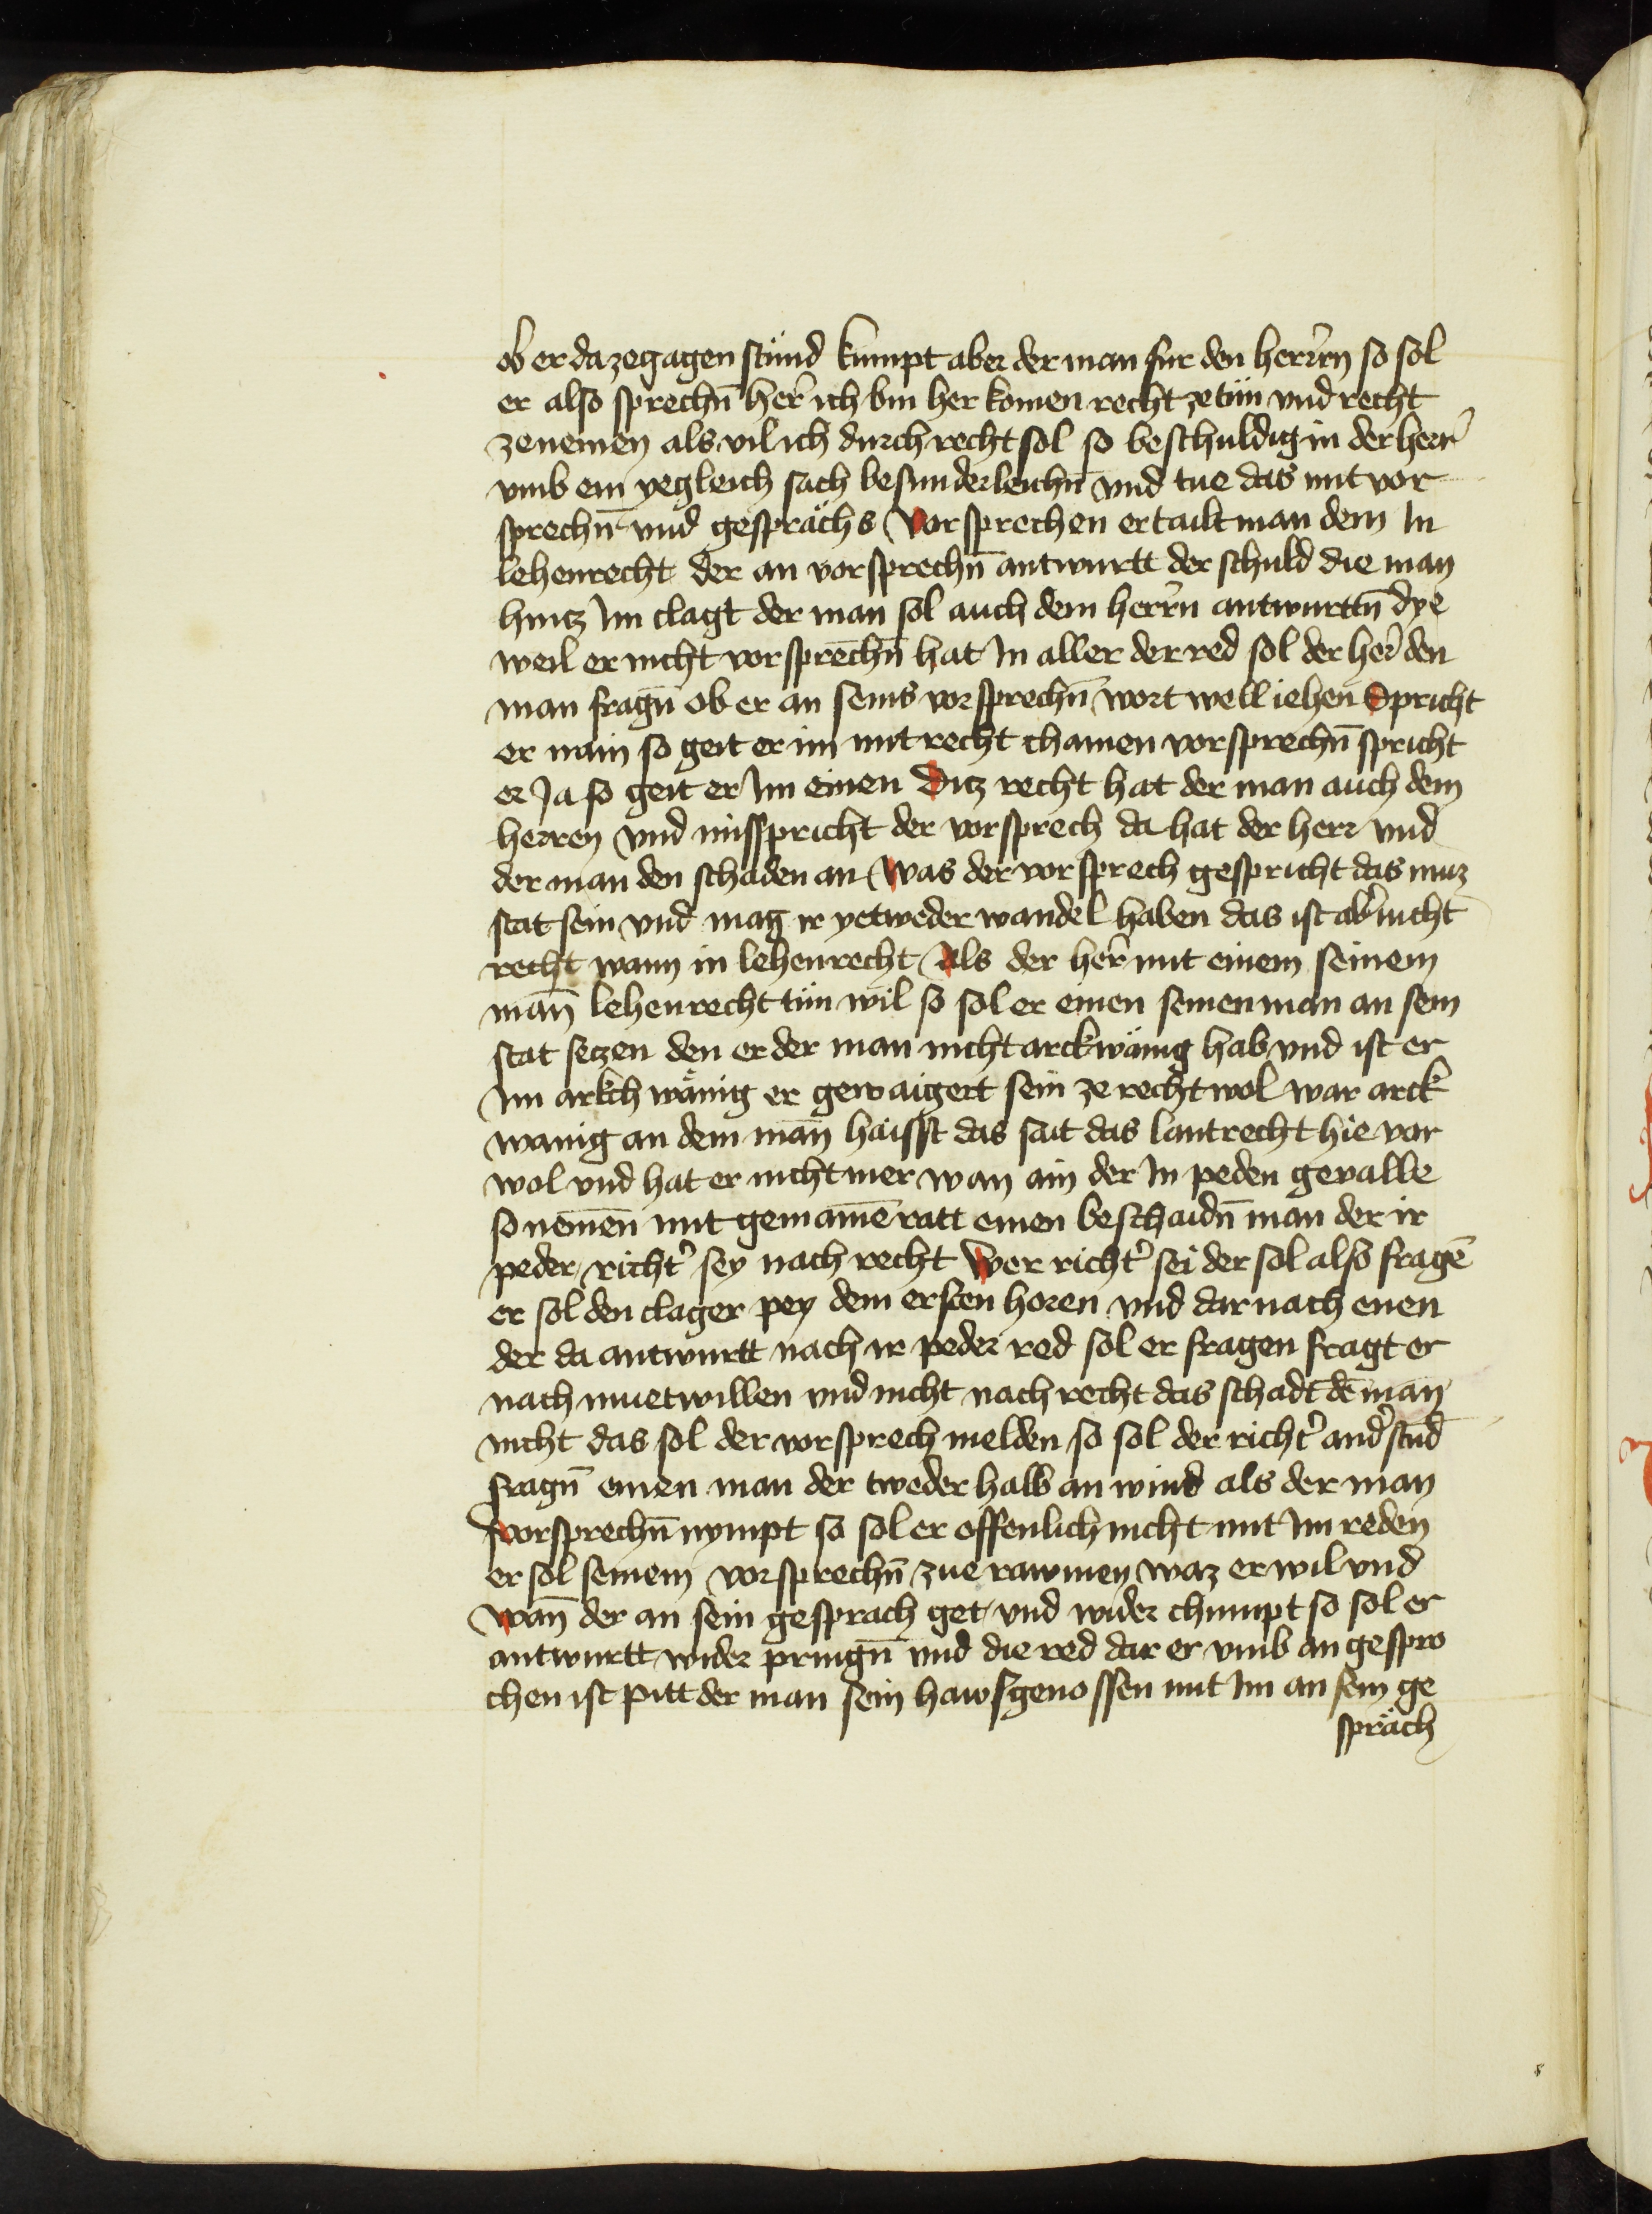 ob er da zegagen stünd kumpt aber der man fur den herren so sol
er also sprechn̄ her̄ ich bin her komen recht zetün vnd recht
zenemen als vil ich durch recht sol so beschuldig in der herr̄
vmb ein yegleich sach besunderleichn̄ vnd tue das mit vor
sprechn̄ vnd gesprächs Vorsprechen ertailt man dem In
lehenrecht der an vorsprechn̄ antwurtt der schuld die man
hintz Im clagt der man sol auch dem herrn̄ antwurttn̄ dye
weil er nicht vorsprechn̄ hat In aller der red sol der her̄ den
man fragn̄ ob er an seins vorsprechn̄ wort well iehen Spricht
er nain so geit er im mit recht chainen vorsprechn̄ spricht
er Ja so geit er Im einen Ditz recht hat der man auch dem
herren vnd misspricht der vorsprech da hat der herr vnd
der man den schaden an Was der vorsprech gespricht das muz
stat sein vnd mag ir yetweder wandel haben das ist abr̄ nicht
recht wann in lehenrecht Als der her̄ mit einem seinem
man̄ lehenrecht tün wil so sol er einen seinen man an sein
stat setzen den er der man nicht arckwänig hab vnd ist er
Im arkch wänig er gewaigert sein ze recht wol war arck
wanig an dem man̄ haisst das sait das lantrecht hie vor
wol vnd hat er nicht mer wan ain der In peden gevalle
so nemēn mit gemainē ratt einen beschaidn̄ man der ir
peder richtr̄ sey nach recht Wer richtr̄ sei der sol also fragē
er sol den clager pey dem ersten horen vnd darnach enen
der da antwurtt nach ir peder red sol er fragen fragt er
nach muetwillen vnd nicht nach recht das schadt dē man
nicht das sol der vorsprech melden so sol der richtr̄ andr̄stūd
fragn̄ einen man der tweder halb an wind als der man
vorsprechn̄ nympt so sol er offenlich nicht mit Im reden
er sol seinem vorsprechn̄ zue rawmen waz er wil vnd
Wan̄ der an sein gesprach get vnd wider chumpt so sol er
antwurtt wider pringn̄ vnd die red dar er vmb an gespro
chen ist pitt der man sein hawsgenossen mit Im an sein ge
spräch